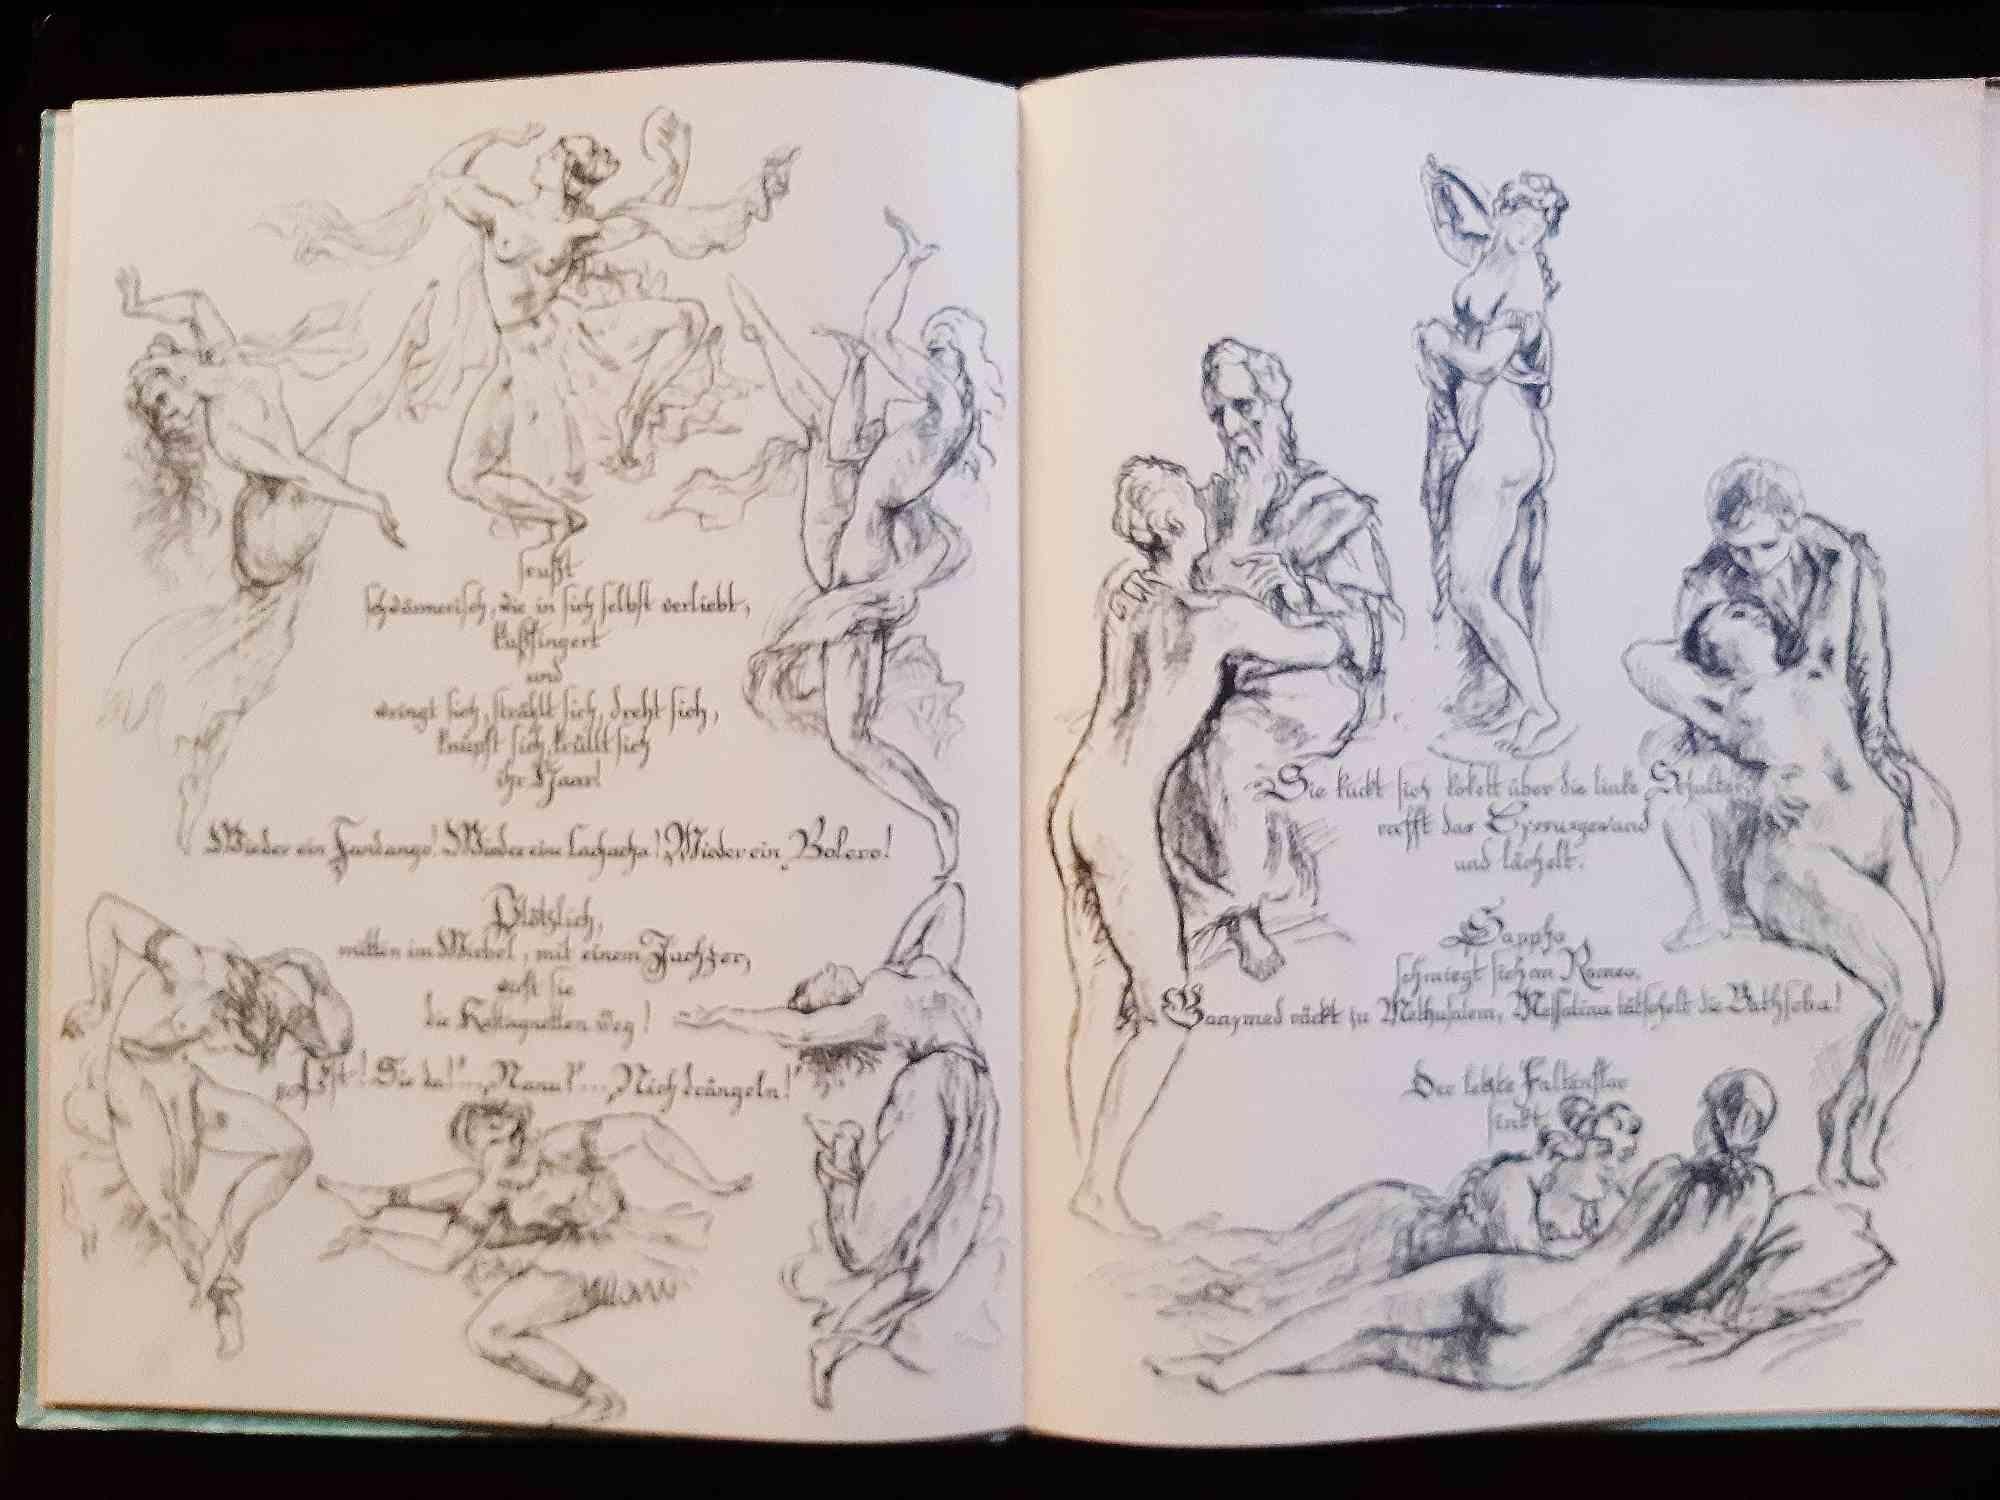 seufzt
schwärmerisch, wie in sich selbst verliebt,
kußfingert
und
wringt sich, strählt sich, dreht sich,
knüpft sich, krüllt sich
ihr Haar!
Wieder ein Fandango! Wieder eine Cachucha! Wieder ein Bolero!
Plötzlich,
mitten im Wirbel, mit einem Juchzer,
wirft sie
die Kastagnetten weg!
„Pst! Sie da!“ .. „Nanu?“ .. „Nich drängeln!“
Sie kuckt sich kokett über die linke Schulter,
rafft das Byssusgewand
und lächelt.
Sappho
schmiegt sich an Romeo,
Ganymed rückt zu Methusalem, Messalina tätschelt die Bathseba!
Der letzte Faltenflor
sinkt